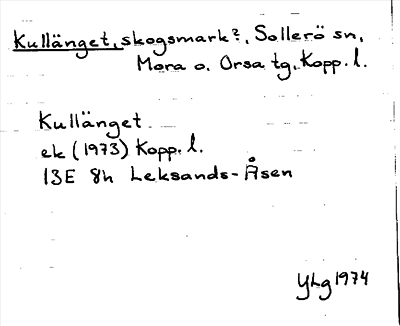 Kullänget, skogsmark?, Sollerö sn,
Mora o. Orsa tg, Kopp. l.
Kullänget
ek (1973) Kopp. l.
13E 8h Leksands-Åsen
YLg 1974